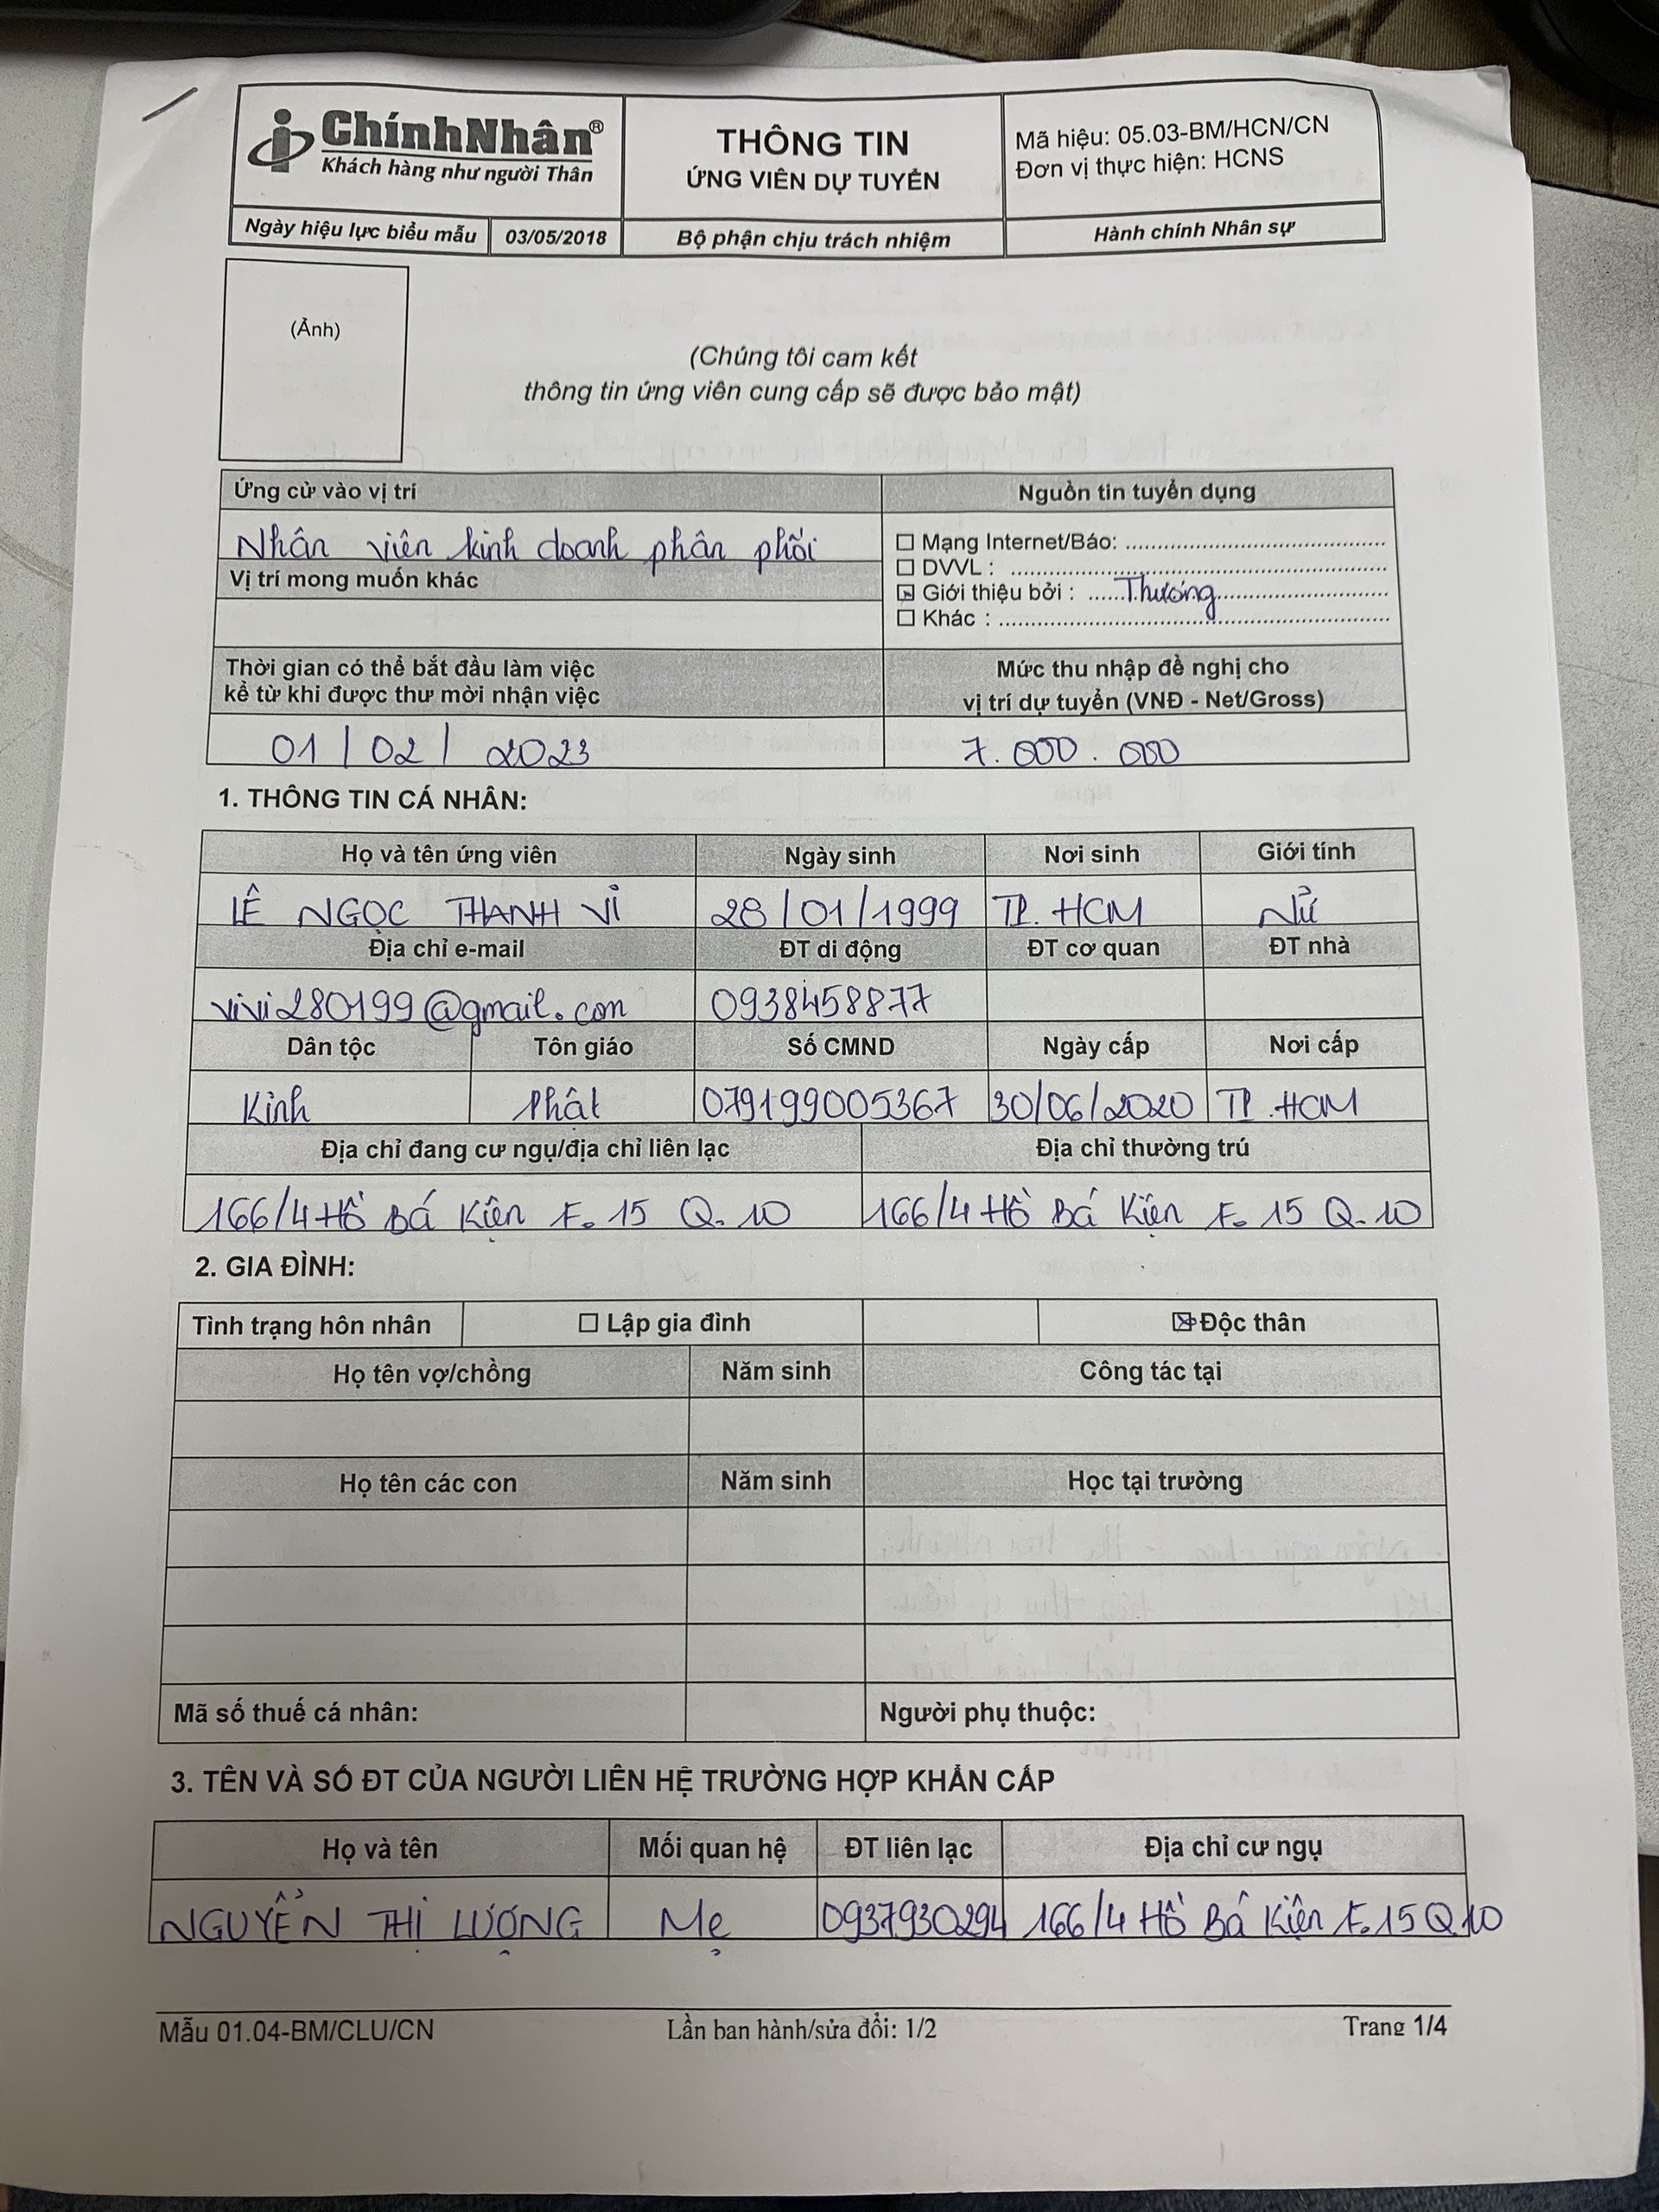 ChínhNhân®
Khách hàng như người Thân
THÔNG TIN
ỨNG VIÊN DỰ TUYỂN
Mã hiệu: 05.03-BM/HCN/CN
Đơn vị thực hiện: HCNS
Ngày hiệu lực biểu mẫu 03/05/2018 Bộ phận chịu trách nhiệm Hành chính Nhân sự
(Ảnh)
(Chúng tôi cam kết
thông tin ứng viên cung cấp sẽ được bảo mật)
Ứng cử vào vị trí Nguồn tin tuyển dụng
Nhân viên kinh doanh phân phối
Vị trí mong muốn khác
☐ Mạng Internet/Báo:
☐ DVVL :
☒ Giới thiệu bởi : Thương
☐ Khác :
Thời gian có thể bắt đầu làm việc
kể từ khi được thư mời nhận việc
Mức thu nhập đề nghị cho
vị trí dự tuyển (VNĐ - Net/Gross)
01/02/2023 7.000.000
1. THÔNG TIN CÁ NHÂN:
Họ và tên ứng viên Ngày sinh Nơi sinh Giới tính
LÊ NGỌC THANH VI 28/01/1999 TP. HCM Nữ
Địa chỉ e-mail ĐT di động ĐT cơ quan ĐT nhà
vivi280199@gmail.com 0938458877
Dân tộc Tôn giáo Số CMND Ngày cấp Nơi cấp
Kinh Phật 079199005367 30/06/2020 TP.HCM
Địa chỉ đang cư ngụ/địa chỉ liên lạc Địa chỉ thường trú
166/4 Hồ Bá Kiện F.15 Q.10 166/4 Hồ Bá Kiện F.15 Q.10
2. GIA ĐÌNH:
Tình trạng hôn nhân ☐ Lập gia đình ☒ Độc thân
Họ tên vợ/chồng Năm sinh Công tác tại
Họ tên các con Năm sinh Học tại trường
Mã số thuế cá nhân: Người phụ thuộc:
3. TÊN VÀ SỐ ĐT CỦA NGƯỜI LIÊN HỆ TRƯỜNG HỢP KHẨN CẤP
Họ và tên Mối quan hệ ĐT liên lạc Địa chỉ cư ngụ
NGUYỄN THỊ LƯỢNG Mẹ 0937930294 166/4 Hồ Bá Kiện F.15 Q.10
Mẫu 01.04-BM/CLU/CN Lần ban hành/sửa đổi: 1/2 Trang 1/4